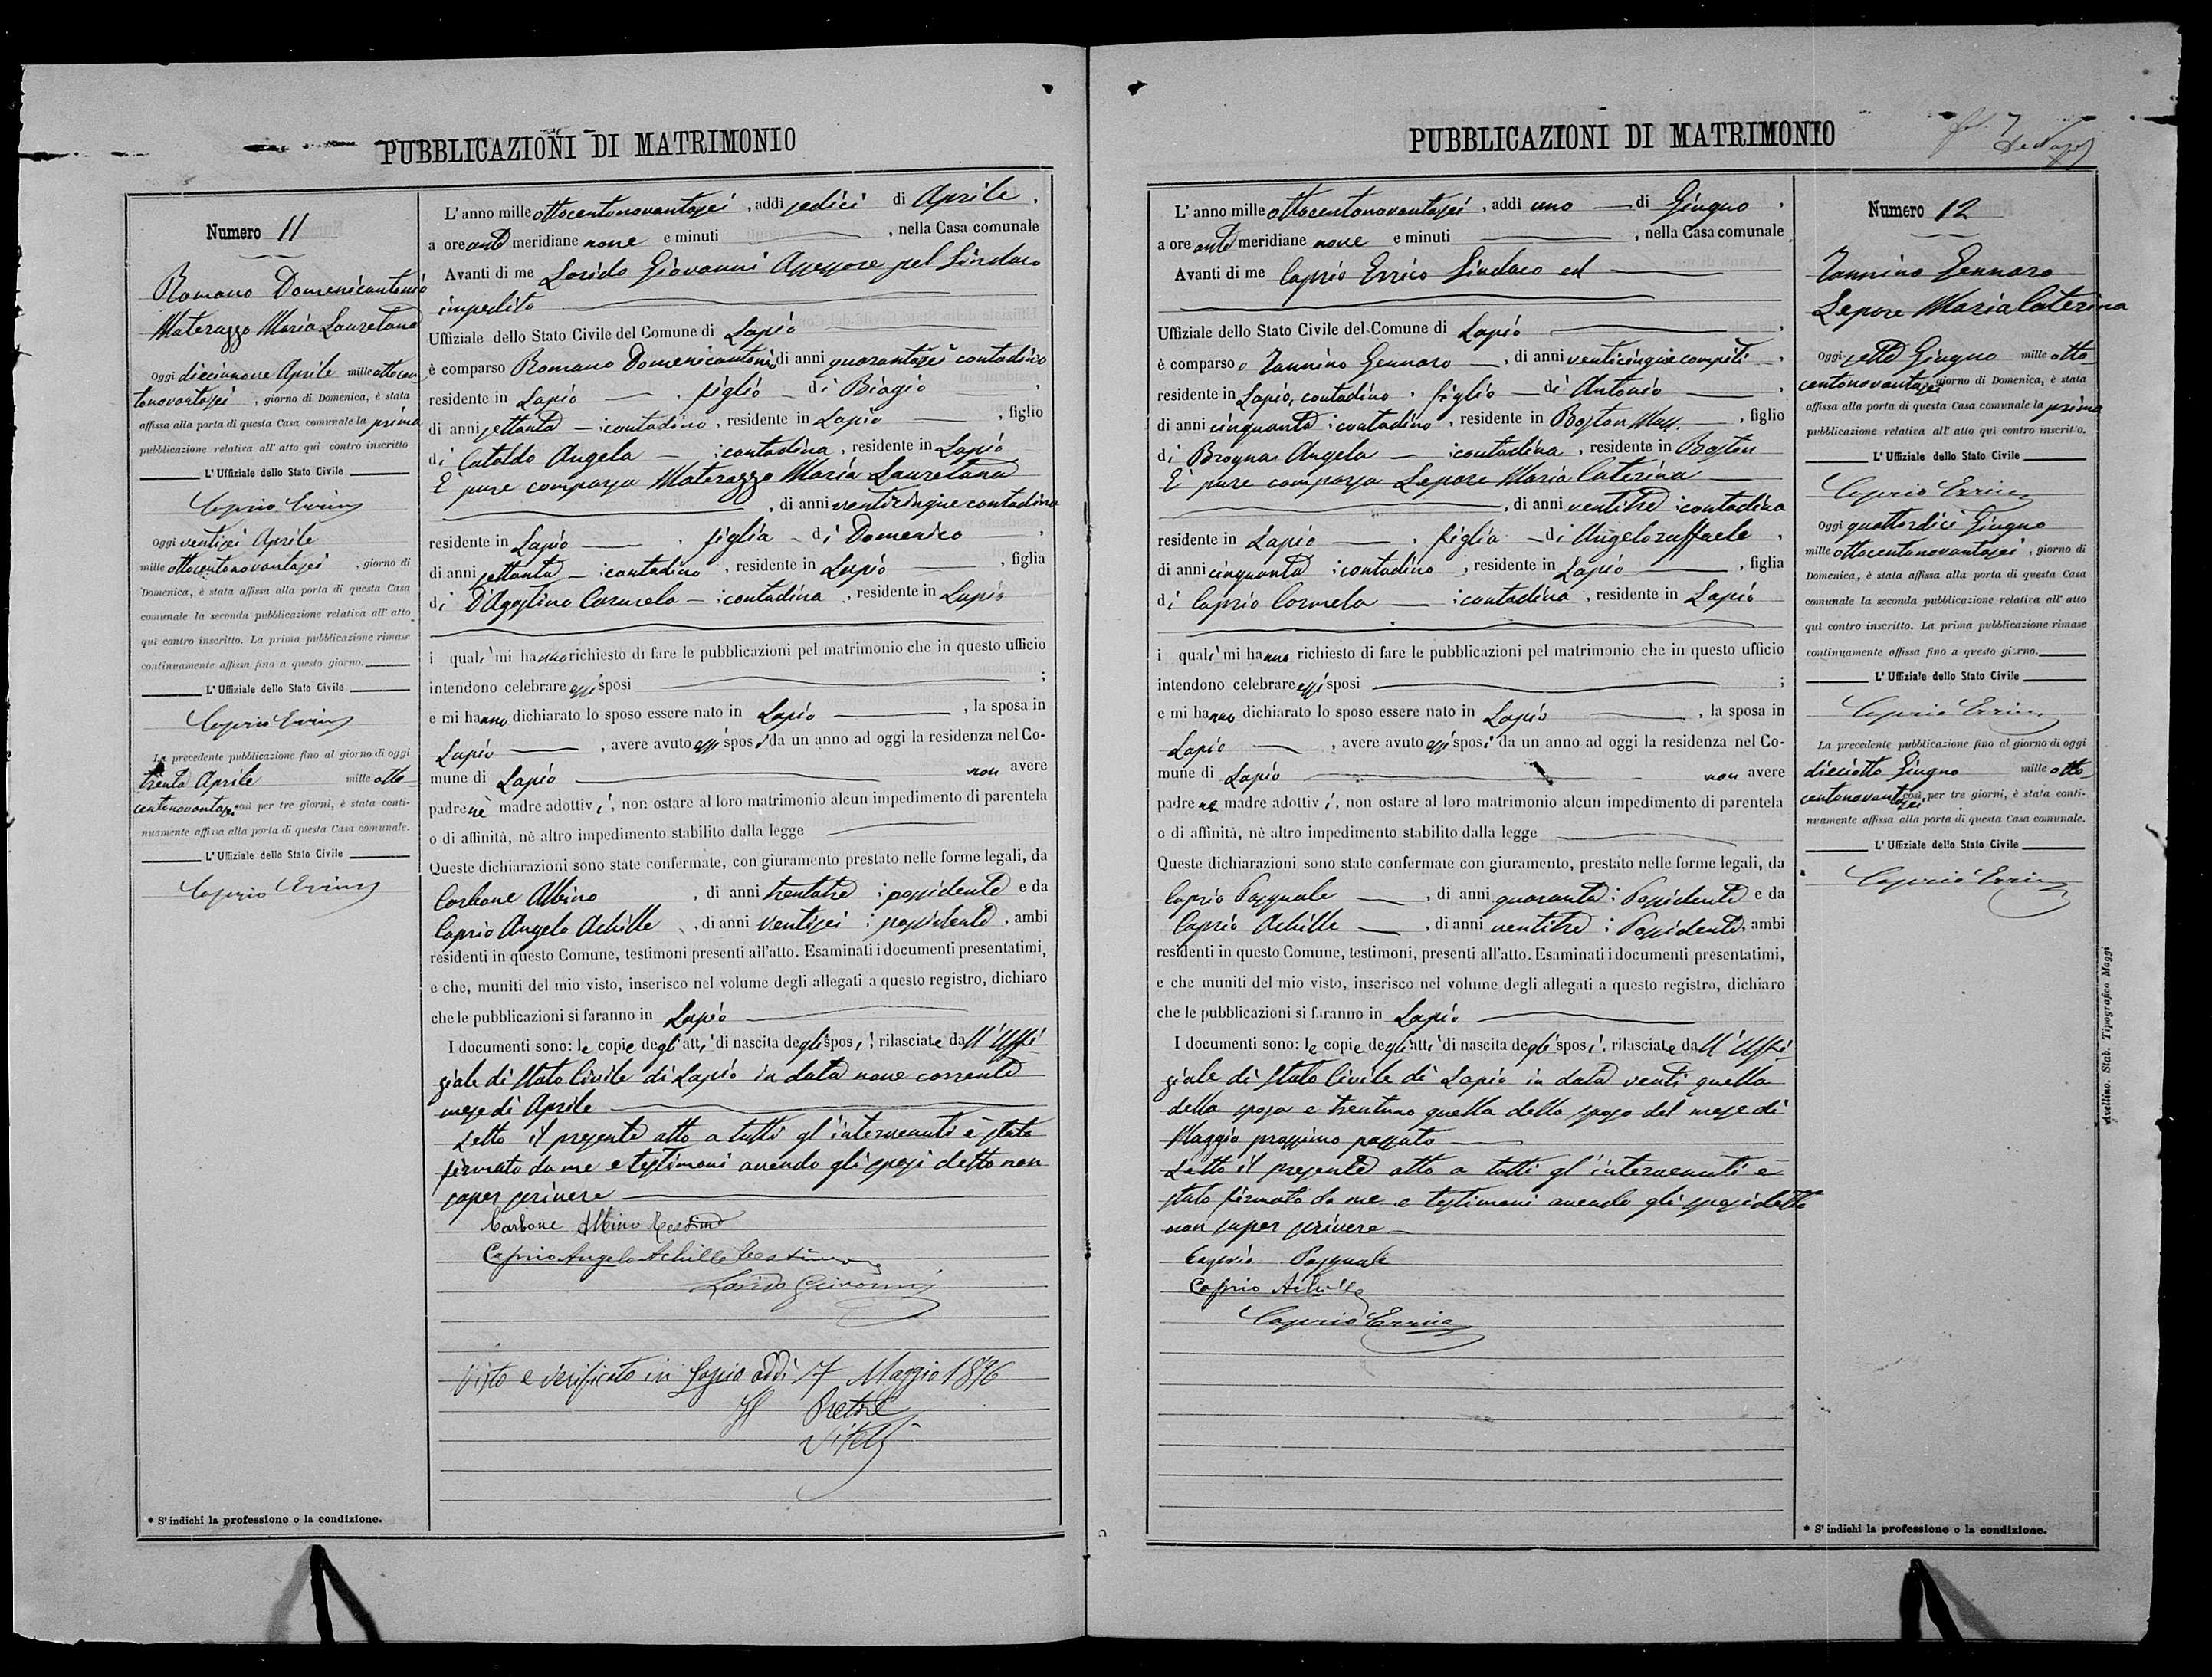 PUBBLICAZIONI DI MATRIMONIO
Numero 11
Romano Domenicantonio
Materazzo Maria Lauretana
Oggi diciannove Aprile mille ottocen
tonovantasei, giorno di Domenica, è stata
affissa alla porta di questa Casa comunale la prima
pubblicazione relativa all' atto qui contro inscritto
L' Uffiziale dello Stato Civile
Caprio Errico
Oggi ventisei Aprile
mille ottocentonovantasei, giorno di
Domenica, è stata affissa alla porta di questa Casa
comunale la seconda pubblicazione relativa all' atto
qui contro inscritto. La prima pubblicazione rimase
continuamente affissa fino a questo giorno.
L' Uffiziale dello Stato Civile
Caprio Errico
La precedente pubblicazione fino al giorno di oggi
trenta Aprile mille otto
centonovantasei così per tre giorni, è stata conti-
nuamente affissa alla porta di questa Casa comunale.
L' Uffiziale dello Stato Civile
Caprio Errico
* S' indichi la professione o la condizione.
L' anno mille ottocentonovantasei, addì sedici di Aprile,
a ore ante meridiane nove e minuti , nella Casa comunale
Avanti di me Lorido Giovanni Assessore pel Sindaco
impedito
Uffiziale dello Stato Civile del Comune di Lapio
è comparso Romano Domenicantonio di anni quarantasei contadino
residente in Lapio , figlio di Biagio ,
di anni settanta ; contadino, residente in Lapio , figlio
di Cataldo Angela ; contadina, residente in Lapio
È pure comparsa Materazzo Maria Lauretana
, di anni venticinque contadina
residente in Lapio , figlia di Domenico ,
di anni settanta ; contadino, residente in Lapio , figlia
di D'Agostino Carmela ; contadina, residente in Lapio
i quali mi hanno richiesto di fare le pubblicazioni pel matrimonio che in questo ufficio
intendono celebrare essi sposi ;
e mi hanno dichiarato lo sposo essere nato in Lapio , la sposa in
Lapio , avere avuto essi sposi da un anno ad oggi la residenza nel Co-
mune di Lapio non avere
padre nè madre adottivi, non ostare al loro matrimonio alcun impedimento di parentela
o di affinità, nè altro impedimento stabilito dalla legge
Queste dichiarazioni sono state confermate, con giuramento prestato nelle forme legali, da
Carbone Albino , di anni trentatre ; possidente e da
Caprio Angelo Achille , di anni ventisei ; possidente, ambi
residenti in questo Comune, testimoni presenti all'atto. Esaminati i documenti presentatimi,
e che, muniti del mio visto, inserisco nel volume degli allegati a questo registro, dichiaro
che le pubblicazioni si faranno in Lapio
I documenti sono: le copie degli atti di nascita degli sposi, rilasciate dall' Uffi
ziale di Stato Civile di Lapio in data nove corrente
mese di Aprile
Letto il presente atto a tutti gl'intervenuti è stato
firmato da me e testimoni avendo gli sposi detto non
saper scrivere
Carbone Albino testimo
Caprio Angelo Achille testimone
Lorido Giovanni
Visto e verificato in Lapio addì 17 Maggio 1896
Il Pretore
PUBBLICAZIONI DI MATRIMONIO
L' anno mille ottocentonovantasei, addì uno di Giugno,
a ore ante meridiane nove e minuti , nella Casa comunale
Avanti di me Caprio Errico Sindaco ed
Uffiziale dello Stato Civile del Comune di Lapio ,
è comparso Iannino Gennaro , di anni venticinque compiti ,
residente in Lapio, contadino, figlio di Antonio ,
di anni cinquanta ; contadino, residente in Boston Mass. , figlio
di Brogna Angela ; contadina, residente in Boston
È pure comparsa Lepore Maria Caterina
, di anni ventitre ; contadina
residente in Lapio , figlia di Angeloraffaele ,
di anni cinquanta ; contadino, residente in Lapio , figlia
di Caprio Carmela ; contadina, residente in Lapio
i quali mi hanno richiesto di fare le pubblicazioni pel matrimonio che in questo ufficio
intendono celebrare essi sposi ;
e mi hanno dichiarato lo sposo essere nato in Lapio , la sposa in
Lapio , avere avuto essi sposi da un anno ad oggi la residenza nel Co-
mune di Lapio non avere
padre ne madre adottivi, non ostare al loro matrimonio alcun impedimento di parentela
o di affinità, nè altro impedimento stabilito dalla legge
Queste dichiarazioni sono state confermate con giuramento, prestato nelle forme legali, da
Caprio Pasquale , di anni quaranta ; Possidente e da
Caprio Achille , di anni ventitre ; Possidente, ambi
residenti in questo Comune, testimoni, presenti all'atto. Esaminati i documenti presentatimi,
e che muniti del mio visto, inserisco nel volume degli allegati a questo registro, dichiaro
che le pubblicazioni si faranno in Lapio
I documenti sono: le copie degli atti di nascita degli sposi, rilasciate dall' Uffi
ziale di Stato Civile di Lapio in data venti quella
della sposa e trentuno quella dello sposo del mese di
Maggio prossimo passato
Letto il presente atto a tutti gl'intervenuti è
stato firmato da me e testimoni avendo gli sposi detto
non saper scrivere
Caprio Pasquale
Caprio Achille
Caprio Errico
Numero 12
Iannino Gennaro
Lepore Maria Caterina
Oggi sette Giugno mille otto
centonovantasei giorno di Domenica, è stata
affissa alla porta di questa Casa comunale la prima
pubblicazione relativa all' atto qui contro inscritto.
L' Uffiziale dello Stato Civile
Caprio Errico
Oggi quattordici Giugno
mille ottocentonovantasei, giorno di
Domenica, è stata affissa alla porta di questa Casa
comunale la seconda pubblicazione relativa all' atto
qui contro inscritto. La prima pubblicazione rimase
continuamente affissa fino a questo giorno.
L' Uffiziale dello Stato Civile
Caprio Errico
La precedente pubblicazione fino al giorno di oggi
diciotto Giugno mille otto
centonovantasei così, per tre giorni, è stata conti-
nuamente affissa alla porta di questa Casa comunale.
L' Uffiziale dello Stato Civile
Caprio Errico
* S' indichi la professione o la condizione.
Avellino. Stab. Tipografico Maggi